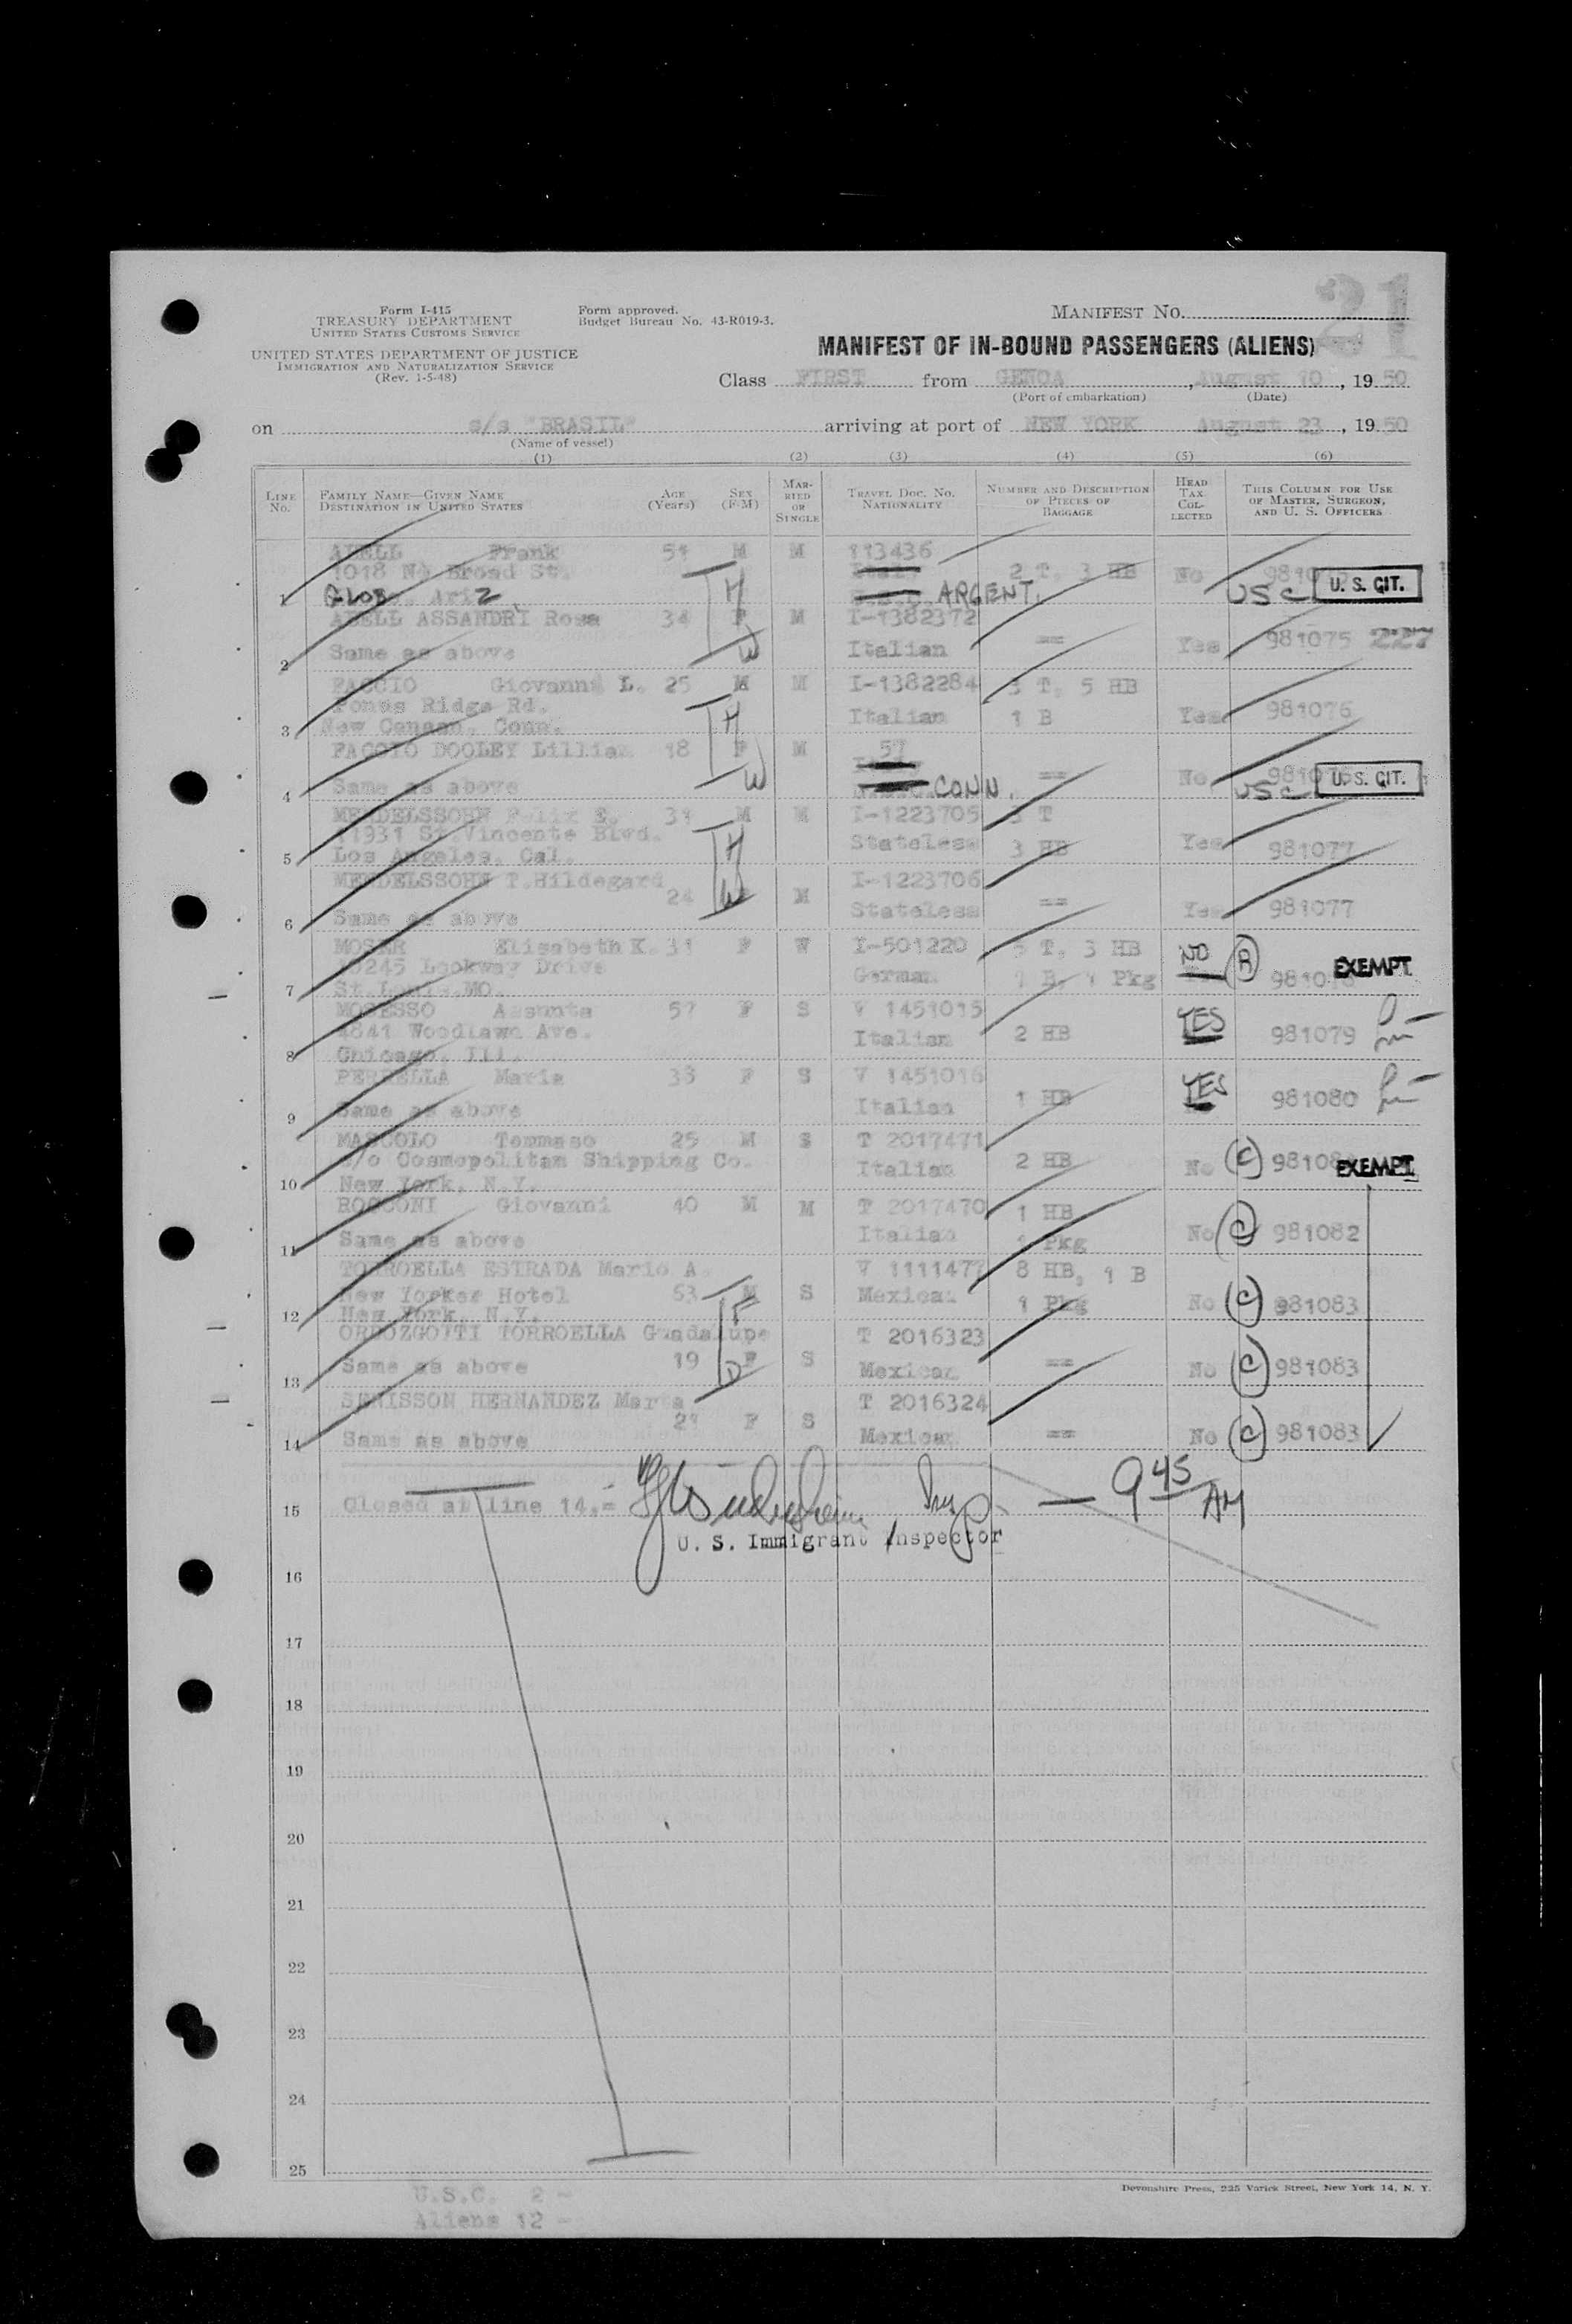 21
Form I-415
TREASURY DEPARTMENT
UNITED STATES CUSTOMS SERVICE
UNITED STATES DEPARTMENT OF JUSTICE
IMMIGRATION AND NATURALIZATION SERVICE
(Rev. 1-5-48)
Form approved.
Budget Bureau No. 43-R019-3.
MANIFEST NO.
MANIFEST OF IN-BOUND PASSENGERS (ALIENS)
Class FIRST from GENOA, August 10, 1950
(Port of embarkation) (Date)
on s/s "BRASIL" arriving at port of NEW YORK August 23, 1950
(Name of vessel)
(1) (2) (3) (4) (5) (6)
LINE NO. FAMILY NAME—GIVEN NAME DESTINATION IN UNITED STATES AGE (Years) SEX (F-M) MARRIED OR SINGLE TRAVEL DOC. NO. NATIONALITY NUMBER AND DESCRIPTION OF PIECES OF BAGGAGE HEAD TAX COLLECTED THIS COLUMN FOR USE OF MASTER, SURGEON, AND U. S. OFFICERS
ABELL Frank 51 M M 113436
1018 No Broad St. 2 T, 3 HB No
1 Globe, Ariz H ARGENT. USC U. S. CIT.
ABELL ASSANDRI Rosa 34 F M I-1382372
2 Same as above W Italian == Yes 981075 227
FACCIO Giovanni L. 25 M M I-1382284 3 T, 5 HB
Ponus Ridge Rd. Italian 1 B Yes 981076
3 New Canaan, Conn. H
FACCIO DOOLEY Lillian 18 F M 57
4 Same as above W CONN. == No 981076 USC U. S. CIT.
MENDELSSOHN Felix E. 39 M M I-1223705 3 T
11931 St. Vincente Blvd. Stateless 3 HB Yes 981077
5 Los Angeles, Cal. H
MENDELSSOHN T. Hildegard I-1223706
24 F M
6 Same as above W Stateless == Yes 981077
MOSER Elisabeth K. 31 F W I-501220 5 T, 3 HB NO (R)
10245 Lookway Drive German 1 B, 1 Pkg EXEMPT
7 St. Louis, MO.
MOSESSO Assunta 57 F S V 1451015 YES
4841 Woodlawn Ave. Italian 2 HB 981079
8 Chicago, Ill.
PERRELLA Maria 33 F S V 1451016 YES
9 Same as above Italian 1 HB 981080
MASCOLO Tommaso 25 M S T 2017471
c/o Cosmopolitan Shipping Co. Italian 2 HB No (C) EXEMPT
10 New York, N.Y.
ROCCONI Giovanni 40 M M T 2017470 1 HB
11 Same as above Italian 1 Pkg No (C) 981082
TORROELLA ESTRADA Mario A. V 1111477 8 HB, 1 B
New Yorker Hotel 53 M S Mexican 1 Pkg No (C) 981083
12 New York, N.Y. F
ORBOZGOITI TORROELLA Guadalupe T 2016323
13 Same as above 19 F S D Mexican == No (C) 981083
SENISSON HERNANDEZ Marta T 2016324
21 F S
14 Same as above Mexican == No (C) 981083
15 Closed at line 14.= Insp. — 9 45 AM
U. S. Immigrant Inspector
16
17
18
19
20
21
22
23
24
25
Devonshire Press, 225 Varick Street, New York 14, N. Y.
U.S.C. 2 -
Aliens 12 -